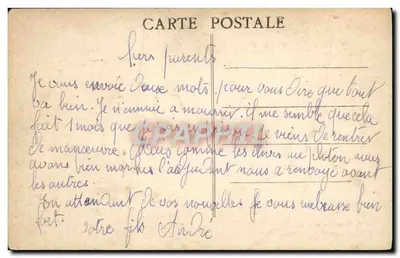 CARTE POSTALE
Chers parents
Je vous envoie deux mots pour vous dire que tout
va bien. Je m'ennuie a mourrir. Il me semble que cela
fait 1 mois que je viens de rentrer
de manoeuvre. Mais comme les au peloton nous
avons bien l'adjudant nous a renvoyé avant
les autres.
En attendant de vos nouvelles je vous embrasse bien
fort. Votre fils André